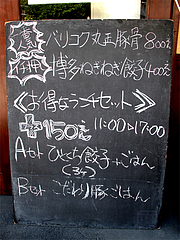 裏 バリコク丸玉豚骨 800え
イチ押 博多ねぎねぎ餃子 400え
≪お得なランチセット≫
+150え 11:00>17:00
Aset ひとくち餃子+ごはん
(3ケ)
Bset こだわり豚ごはん